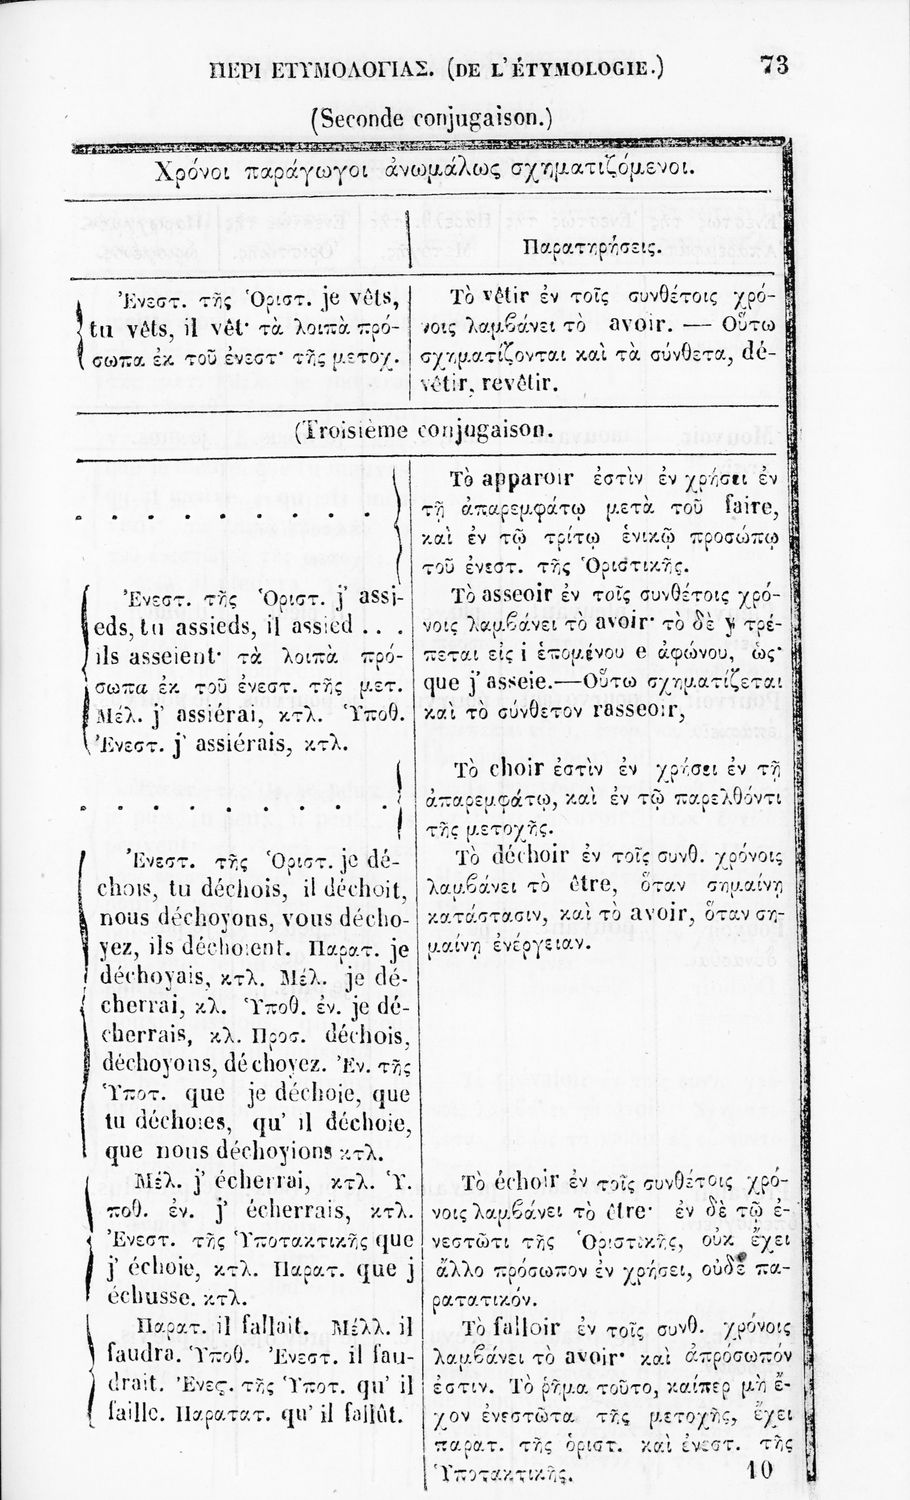 ΠΕΡΙ ΕΤΥΜΟΛΟΓΙΑΣ. (DE L'ÉTYMOLOGIE.) 73
(Seconde conjugaison.)
Χρόνοι παράγωγοι ἀνωμάλως σχηματιζόμενοι.
Παρατηρήσεις.
Ἐνεστ. τῆς Ὁριστ. je vêts,
tu vêts, il vêt· τὰ λοιπὰ πρό-
σωπα ἐκ τοῦ ἐνεστ· τῆς μετοχ.
Τὸ vêtir ἐν τοῖς συνθέτοις χρό-
νοις λαμβάνει τὸ avoir. — Οὕτω
σχηματίζονται καὶ τὰ σύνθετα, dé-
vêtir, revêtir.
(Troisième conjugaison.
. . . . . . . . . . . .
Τὸ apparoir ἐστὶν ἐν χρήσει ἐν
τῇ ἀπαρεμφάτῳ μετὰ τοῦ faire,
καὶ ἐν τῷ τρίτῳ ἑνικῷ προσώπῳ
τοῦ ἐνεστ. τῆς Ὁριστικῆς.
Ἐνεστ. τῆς Ὁριστ. j' assi-
eds, tu assieds, il assied . . .
ils asseient· τὰ λοιπὰ πρό-
σωπα ἐκ τοῦ ἐνεστ. τῆς μετ.
Μέλ. j' assiérai, κτλ. Ὑποθ.
Ἐνεστ. j' assiérais, κτλ.
Τὸ asseoir ἐν τοῖς συνθέτοις χρό-
νοις λαμβάνει τὸ avoir· τὸ δὲ y τρέ-
πεται εἰς i ἑπομένου e ἀφώνου, ὡς·
que j' asseie.—Οὕτω σχηματίζεται
καὶ τὸ σύνθετον rasseoir,
. . . . . . . . . . . .
Τὸ choir ἐστὶν ἐν χρήσει ἐν τῇ
ἀπαρεμφάτῳ, καὶ ἐν τῷ παρελθόντι
τῆς μετοχῆς.
Ἐνεστ. τῆς Ὁριστ. je dé-
chois, tu déchois, il déchoit,
nous déchoyons, vous décho-
yez, ils déchoient. Παρατ. je
déchoyais, κτλ. Μέλ. je dé-
cherrai, κλ. Ὑποθ. ἐν. je dé-
cherrais, κλ. Προσ. déchois,
déchoyons, déchoyez. Ἐν. τῆς
Ὑποτ. que je déchoie, que
tu déchoies, qu' il déchoie,
que nous déchoyions κτλ.
Τὸ déchoir ἐν τοῖς συνθ. χρόνοις
λαμβάνει τὸ être, ὅταν σημαίνῃ
κατάστασιν, καὶ τὸ avoir, ὅταν ση-
μαίνῃ ἐνέργειαν.
Μέλ. j' écherrai, κτλ. Ὑ.
ποθ. ἐν. j' écherrais, κτλ.
Ἐνεστ. τῆς Ὑποτακτικῆς que
j' échoie, κτλ. Παρατ. que j
échusse. κτλ.
Τὸ échoir ἐν τοῖς συνθέτοις χρό-
νοις λαμβάνει τὸ être· ἐν δὲ τῷ ἐ-
νεστῶτι τῆς Ὁριστικῆς, οὐκ ἔχει
ἄλλο πρόσωπον ἐν χρήσει, οὐδὲ πα-
ρατατικόν.
Παρατ. il fallait. Μέλλ. il
faudra. Ὑποθ. Ἐνεστ. il fau-
drait. Ἐνεϛ. τῆς Ὑποτ. qu' il
faille. Παρατατ. qu' il fallût.
Τὸ falloir ἐν τοῖς συνθ. χρόνοις
λαμβάνει τὸ avoir· καὶ ἀπρόσωπόν
ἐστιν. Τὸ ῥῆμα τοῦτο, καίπερ μὴ ἔ-
χον ἐνεστῶτα τῆς μετοχῆς, ἔχει
παρατ. τῆς ὁριστ. καὶ ἐνεστ. τῆς
Ὑποτακτικῆς.
10